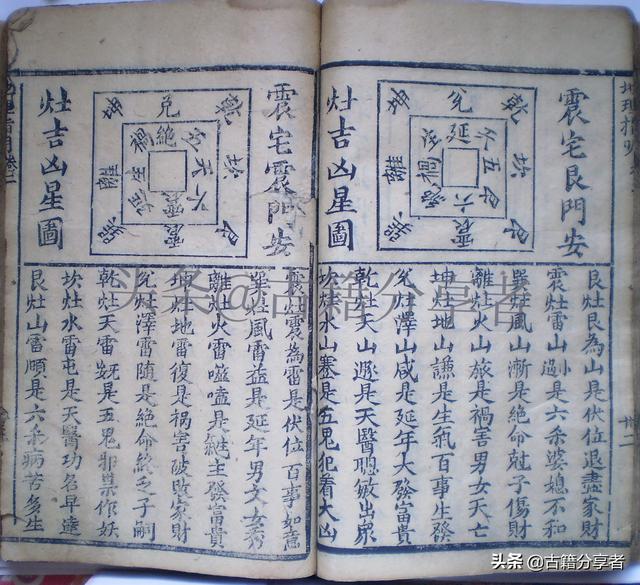 震宅艮門安
灶吉凶星圖
乾
坎
艮
震
兌
延
五
六
艮灶艮為山是伏位退盡家財
震灶雷山小過是六杀婆媳不和
巽灶風山漸是絶命尅子傷財
離灶火山旅是禍害男女夭亡
坤灶地山謙是生氣百事生發
兌灶澤山咸是延年大發富貴
乾灶天山遯是天醫聰敏出衆
坎灶水山蹇是五鬼犯着大凶
震宅震門安
灶吉凶星圖
兌
乾
坎
艮
震
離
禍
絶
五
天
六
震灶震為雷是伏位百事如意
巽灶風雷益是延年男文女秀
離灶火雷噬嗑是生氣主發富貴
坤灶地雷復是禍害破敗家財
兌灶澤雷随是絶命終乏子嗣
乾灶天雷是五鬼邪祟作妖
坎灶水雷屯是天醫功名早達
艮灶山雷頤是六杀病苦多生
头条@古籍分享者
头条 @古籍分享者